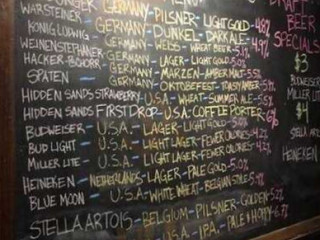 GERMANY-
WARSTEINER-GERMANY-PILSNER-LIGHT GOLD-4.8%
KONIG LUDWIG-GERMANY-DUNKEL-DARK ALE-
WEINENSTEPHANER-GERMANY-WEISS-WHEAT BEER-5.1%
HACKER-PSCHORR-GERMANY-LAGER-LIGHT GOLD-5.0%
SPATEN-GERMANY-MARZEN-AMBER MALT-5.5%
GERMANY-OKTOBERFEST-TOASTY AMBER
HIDDEN SANDS STRAWBERRY-U.S.A-WHEAT-SUMMER ALE-5.6%
HIDDEN SANDS FIRST DROP-U.S.A-COFFEE PORTER-6%
BUDWEISER-U.S.A.-LAGER-LIGHT GOLD
BUD LIGHT-U.S.A.-LAGER-LIGHT-FEWER CALORIES-4.2%
MILLER LITE-U.S.A.-LAGER-LIGHT-FEWER CALORIES-4.2%
HEINEKEN-NETHERLANDS-LAGER-PALE GOLD-5.0%
BLUE MOON-U.S.A.-WHITE WHEAT-BELGIAN STYLE
STELLA ARTOIS-BELGIUM-PILSNER-GOLDEN-5.2%
U.S.A.-I.P.A.-PALE & HOPPY-6.7%
DRAFT
BEER
SPECIALS
$3
BUDWEISER
MILLER LITE
$4
STELLA ARTOIS
HEINEKEN